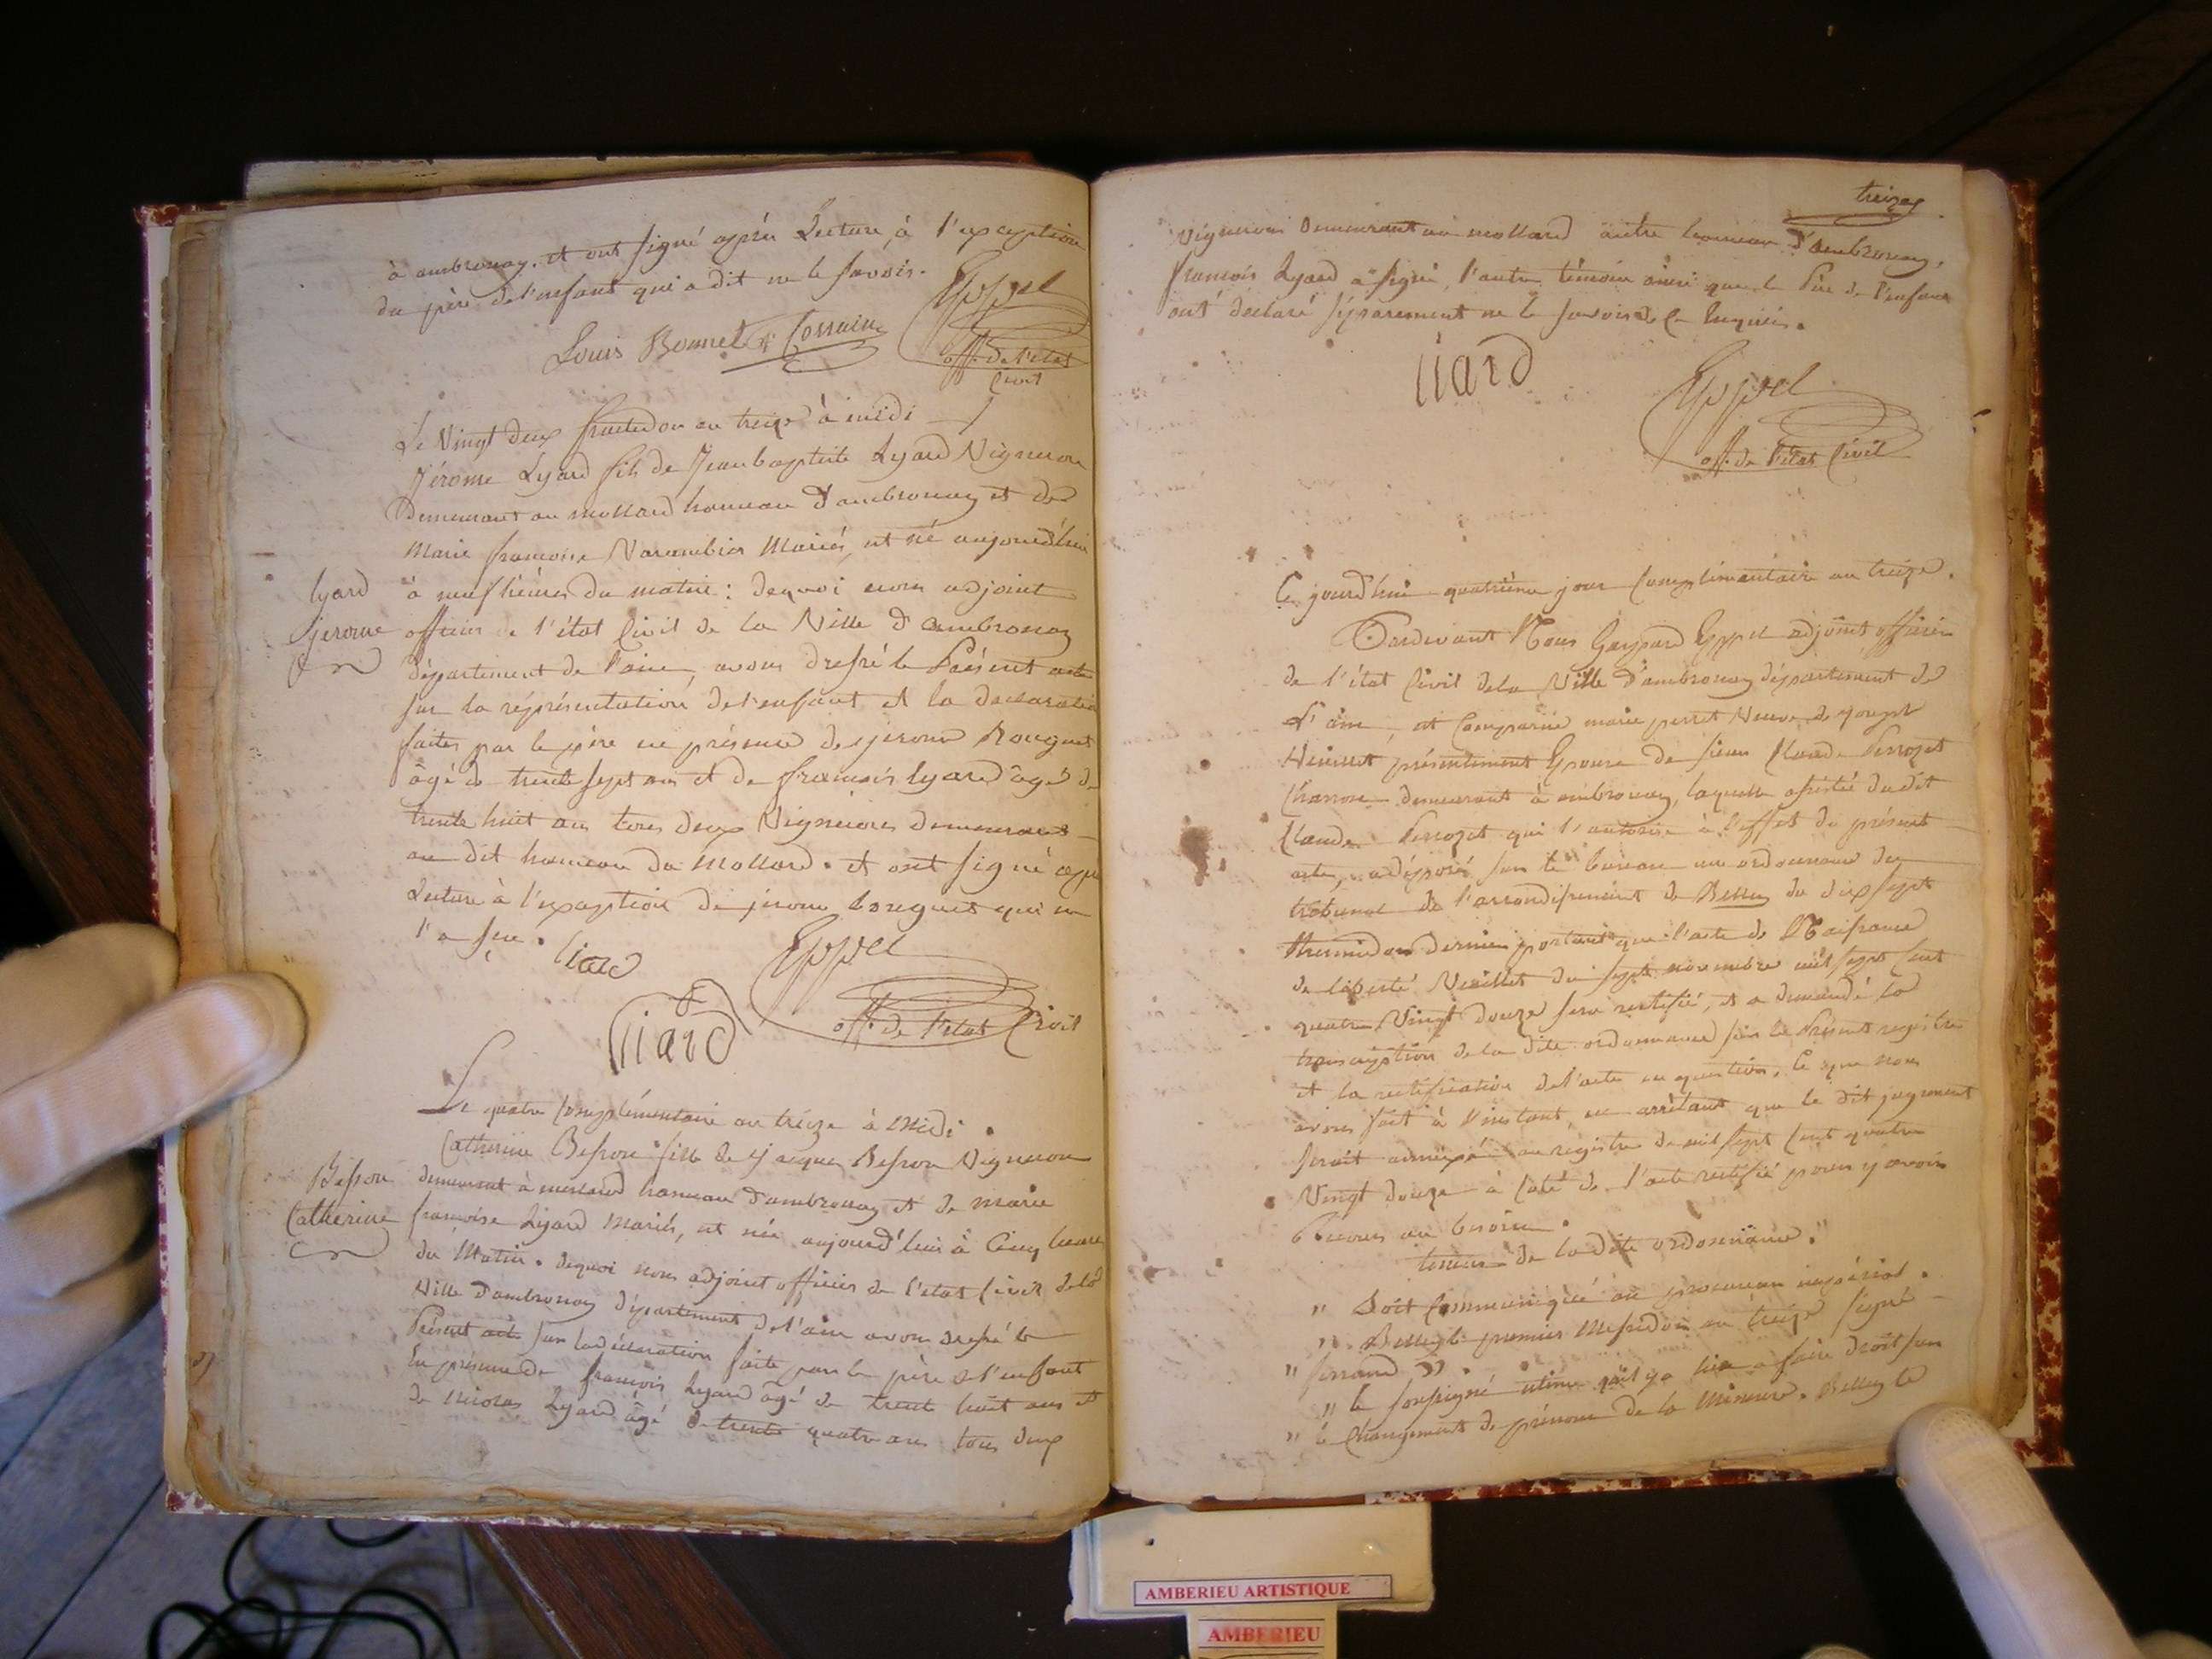 à ambronay. et ont signé après Lecture, à l'exception
du père de l'enfant qui a dit ne le savoir.
Louis Bonnet Eppel
off. de l'état
Civil
Le Vingt deux fructidor an treize à midi
Jérome Lyard fils de Jean baptiste Lyard Vigneron
Demeurant au mollard hameau d'ambronay et de
Marie françoise Varambier Mariés, est né aujourd'hui
Lyard à neuf heures du matin : de quoi nous adjoint
jerome officier de l'état Civil de la Ville d'ambronay
département de l'ain, avons dressé le Présent acte
sur la réprésentation de l'enfant et la declaration
faites par le père en présence de jerome Bouguet
âgé de trente sept ans et de françois lyard âgé de
trente huit ans tous deux Vignerons demeurant
au dit hameau du Mollard. et ont signé après
Lecture à l'exception de jerome bouguet qui ne
l'a sçu. liard Eppel
off. de l'état Civil
liard
Le quatre Complémentaire an treize à Midi.
Catherine Besson fille de jacques Besson Vigneron
Besson demeurant à mollard hameau d'ambronay et de marie
Catherine françoise Lyard Mariés, est née aujourd'hui à Cinq heures
du Matin. de quoi nous adjoint officier de l'état Civil de la
Ville d'ambronay département de l'ain avons dressé le
Présent acte sur la déclaration faite par le père de l'enfant
En présence de françois Lyard âgé de trente huit ans et
de nicolas Lyard âgé de trente quatre ans tous deux
treize
Vignerons Demeurant au mollard autre hameau d'ambronay,
françois Lyard a signé, l'autre témoin ainsi que le Père de l'enfant
ont déclaré séparement ne le savoir de ce Enquis.
liard Eppel
off. de l'état Civil
Ce jourd'hui quatrième jour Complémentaire an treize.
Pardevant Nous Gaspard Eppel adjoint officier
de l'état Civil de la Ville d'ambronay département de
L'ain, est Comparue marie perret Veuve de joseph
présentement Epouse de sieur Claude Perrozet
Charron demeurant à ambronay, laquelle assistée dudit
Claude Perrozet qui l'autorise à l'effet du présent
acte, a déposé sur le bureau une ordonnance du
tribunal de l'arrondissement de Belley du dix sept
thermidor dernier portant que l'acte de Naissance
de liberté du sept novembre mil sept Cent
quatre Vingt douze sera rectifié, et a demandé la
transcription de la dite ordonnance sur le Présent registre
et la rectification de l'acte en question, Ce que nous
avons fait à l'instant, en arrêtant que le dit jugement
serait annexé au registre de mil sept Cent quatre
Vingt douze à Coté de l'acte rectifié pour y avoir
Recours au besoin.
teneur de la dite ordonnance."
" Soit Communiqué au procureur impérial.
" Belley le premier Messidor an treize signé
" ferrand ".
" le soussigné estime qu'il y a lieu a faire droit sur
" le Changement de prénom de la Mineure. Belley le
AMBERIEU ARTISTIQUE
AMBERIEU